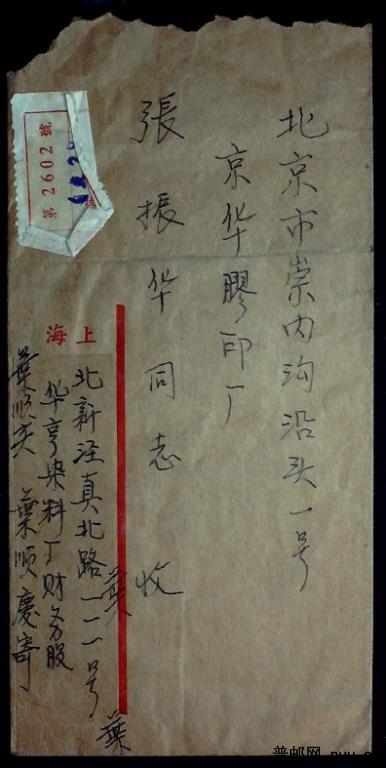 北京市崇内沟沿头一号
京华膠印厂
張振华同志 收
第 2602 號
上海
北新泾真北路一一一号
华亨染料厂财务股
葉順 葉順慶寄
葉
葉
普邮网